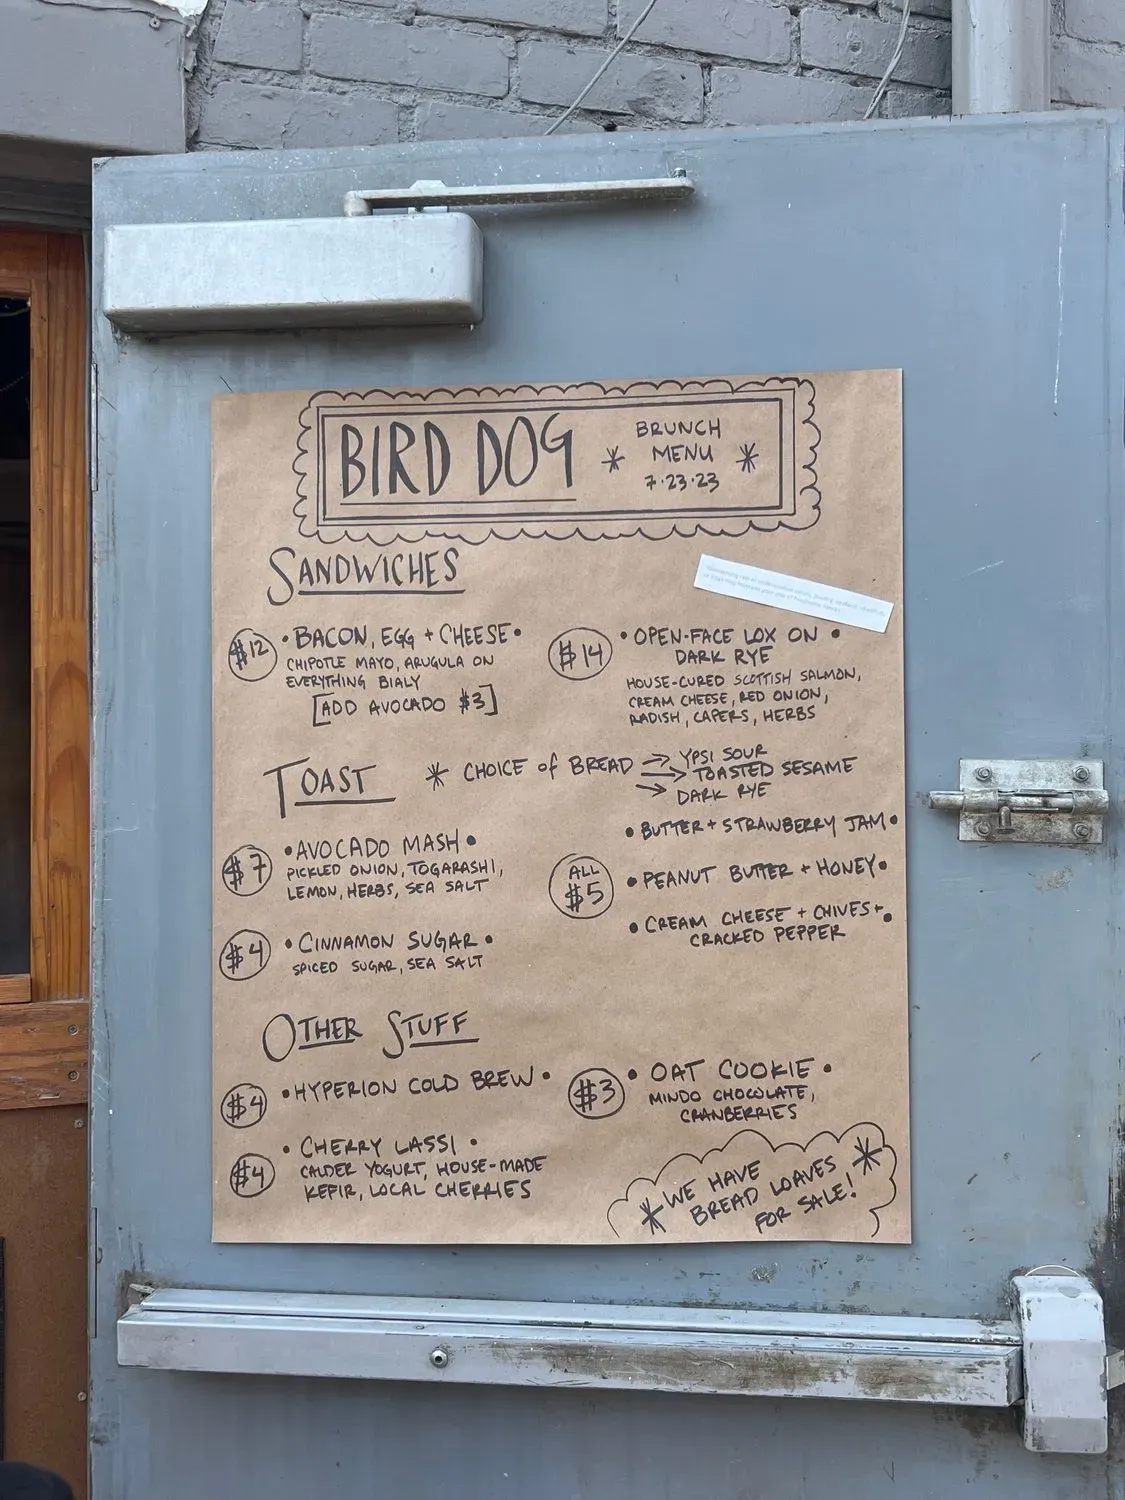 BIRD DOG
BRUNCH
MENU
7·23·23
SANDWICHES
$12
• BACON, EGG + CHEESE •
CHIPOTLE MAYO, ARUGULA ON
EVERYTHING BIALY
[ADD AVOCADO $3]
$14
• OPEN-FACE LOX ON •
DARK RYE
HOUSE-CURED SCOTTISH SALMON,
CREAM CHEESE, RED ONION,
RADISH, CAPERS, HERBS
TOAST
* CHOICE of BREAD
→ YPSI SOUR
→ TOASTED SESAME
→ DARK RYE
$7
• AVOCADO MASH •
PICKLED ONION, TOGARASHI,
LEMON, HERBS, SEA SALT
$4
• CINNAMON SUGAR •
SPICED SUGAR, SEA SALT
ALL
$5
• BUTTER + STRAWBERRY JAM •
• PEANUT BUTTER + HONEY •
• CREAM CHEESE + CHIVES + •
CRACKED PEPPER
OTHER STUFF
$4
• HYPERION COLD BREW •
$4
• CHERRY LASSI •
CALDER YOGURT, HOUSE-MADE
KEFIR, LOCAL CHERRIES
$3
• OAT COOKIE •
MINDO CHOCOLATE,
CRANBERRIES
* WE HAVE *
BREAD LOAVES
FOR SALE!